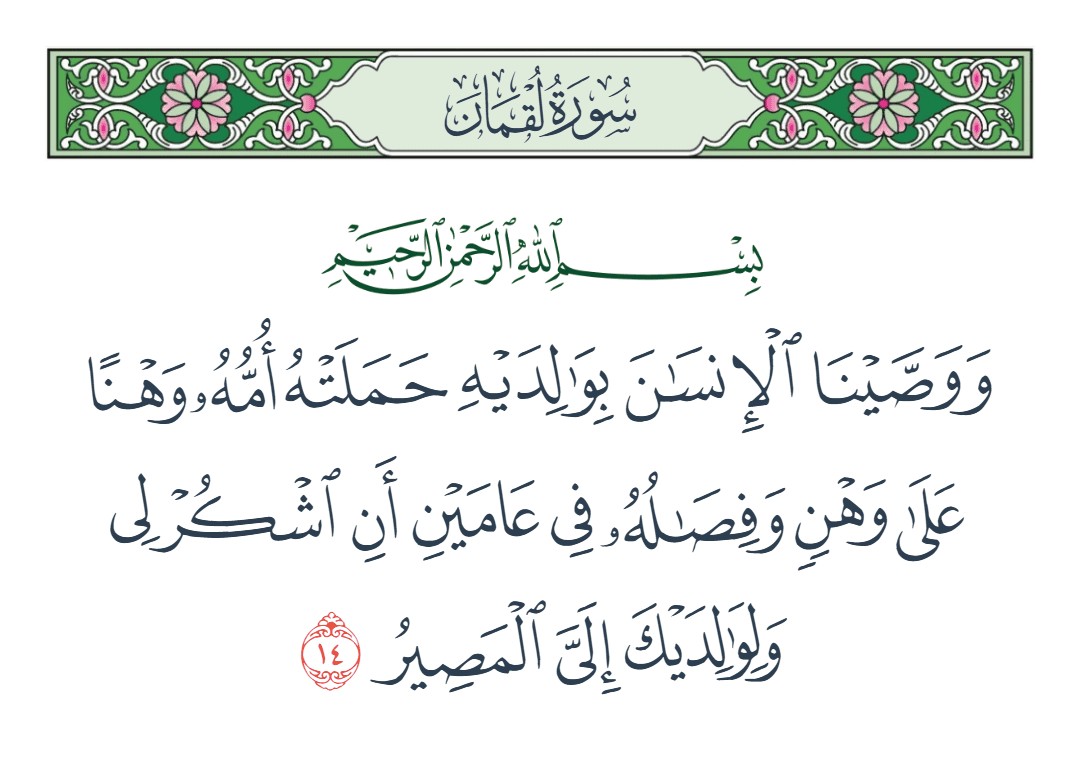 سُورَةُ لُقْمَانَ
بِسْمِ ٱللَّهِ ٱلرَّحْمَٰنِ ٱلرَّحِيمِ
وَوَصَّيْنَا ٱلْإِنسَٰنَ بِوَٰلِدَيْهِ حَمَلَتْهُ أُمُّهُۥ وَهْنًا
عَلَىٰ وَهْنٍ وَفِصَٰلُهُۥ فِى عَامَيْنِ أَنِ ٱشْكُرْ لِى
وَلِوَٰلِدَيْكَ إِلَىَّ ٱلْمَصِيرُ ١٤